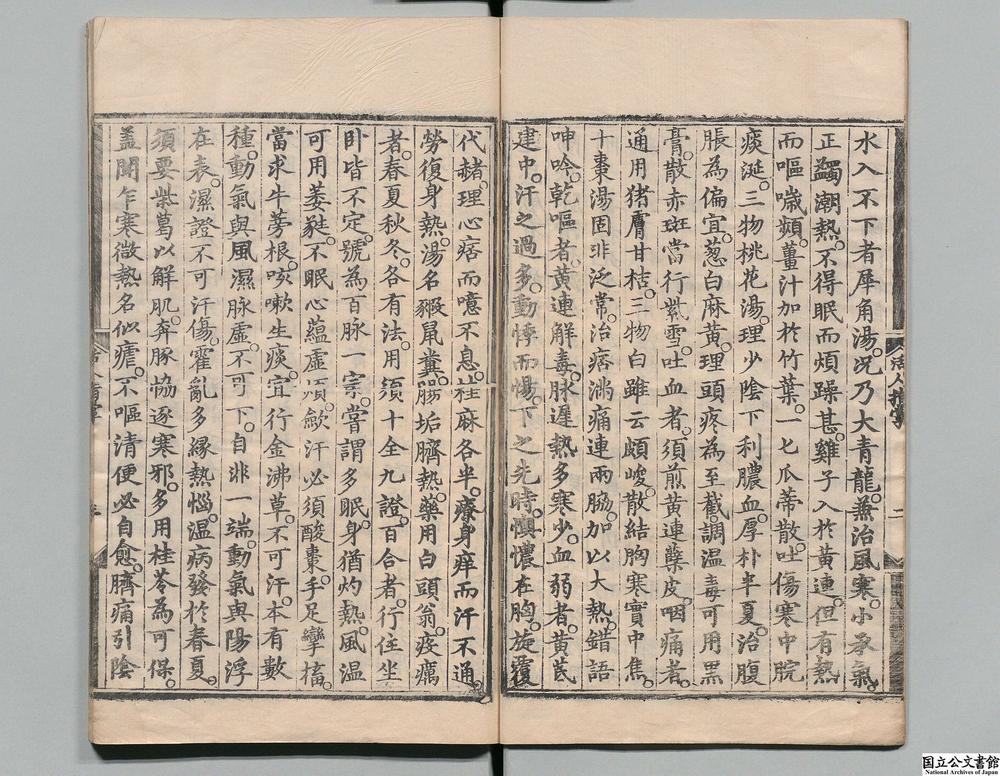 水入不下者犀角湯。況乃大青龍。兼治風寒。小承氣。
正蠲潮熱。不得眠而煩躁甚。雞子入於黃連。但有熱
而嘔噦頻。薑汁加於竹葉。一七瓜蒂散。吐傷寒中脘
痰涎。三物桃花湯。理少陰下利膿血。厚朴半夏。治腹
脹為偏宜。葱白麻黃。理頭疼為至截。調温毒可用黑
膏。散赤斑當行紫雪。吐血者。須煎黃連蘗皮。咽痛者。
通用猪膚甘桔。三物白雖云頗峻。散結胸寒實中焦。
十棗湯固非泛常。治痞滿痛連兩脇。加以大熱。錯語
呻吟。乾嘔者。黃連解毒。脉遲熱多寒少。血弱者。黃芪
建中。汗之過多。動悸而惕。下之先時。懊憹在胸。旋覆
代赭。理心痞而噫不息。桂麻各半。療身痒而汗不通。
勞復身熱。湯名豭鼠糞。腸垢臍熱。藥用白頭翁。疫癘
者。春夏秋冬。各有法。用須十全九證。百合者。行住坐
卧。皆不定。號為百脉一宗。嘗謂多眠。身猶灼熱。風温
可用葳蕤。不眠心蘊虛煩。歛汗必須酸棗。手足攣搐。
當求牛蒡根。咳嗽生痰。宜行金沸草。不可汗。本有數
種。動氣與風濕脉虛。不可下。自非一端。動氣與陽浮
在表。濕證不可汗傷。霍亂多緣熱惱。温病發於春夏。
須要柴葛以解肌。奔豚恊逐寒邪。多用桂苓為可保。
盖聞乍寒微熱名似瘧。不嘔清便必自愈。臍痛引陰
二
国立公文書館
National Archives of Japan